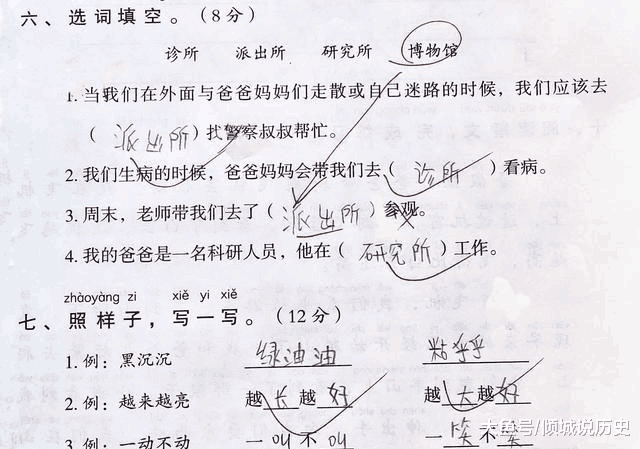 六、选词填空。（8分）
诊所 派出所 研究所 博物馆
1. 当我们在外面与爸爸妈妈们走散或自己迷路的时候，我们应该去
（派出所）找警察叔叔帮忙。
2. 我们生病的时候，爸爸妈妈会带我们去（诊所）看病。
3. 周末，老师带我们去了（派出所）参观。
4. 我的爸爸是一名科研人员，他在（研究所）工作。
zhàoyàng zi xiě yi xiě
七、照样子，写一写。（12分）
1. 例：黑沉沉 绿油油 粘乎乎
2. 例：越来越亮 越长越好 越大越好
3. 例：一动不动 一叫不叫 一笑不笑
大鱼号/倾城说历史